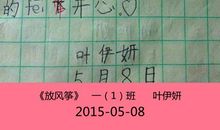 的放开心♡
叶伊妍
5月8日
《放风筝》 一（1）班 叶伊妍
2015-05-08